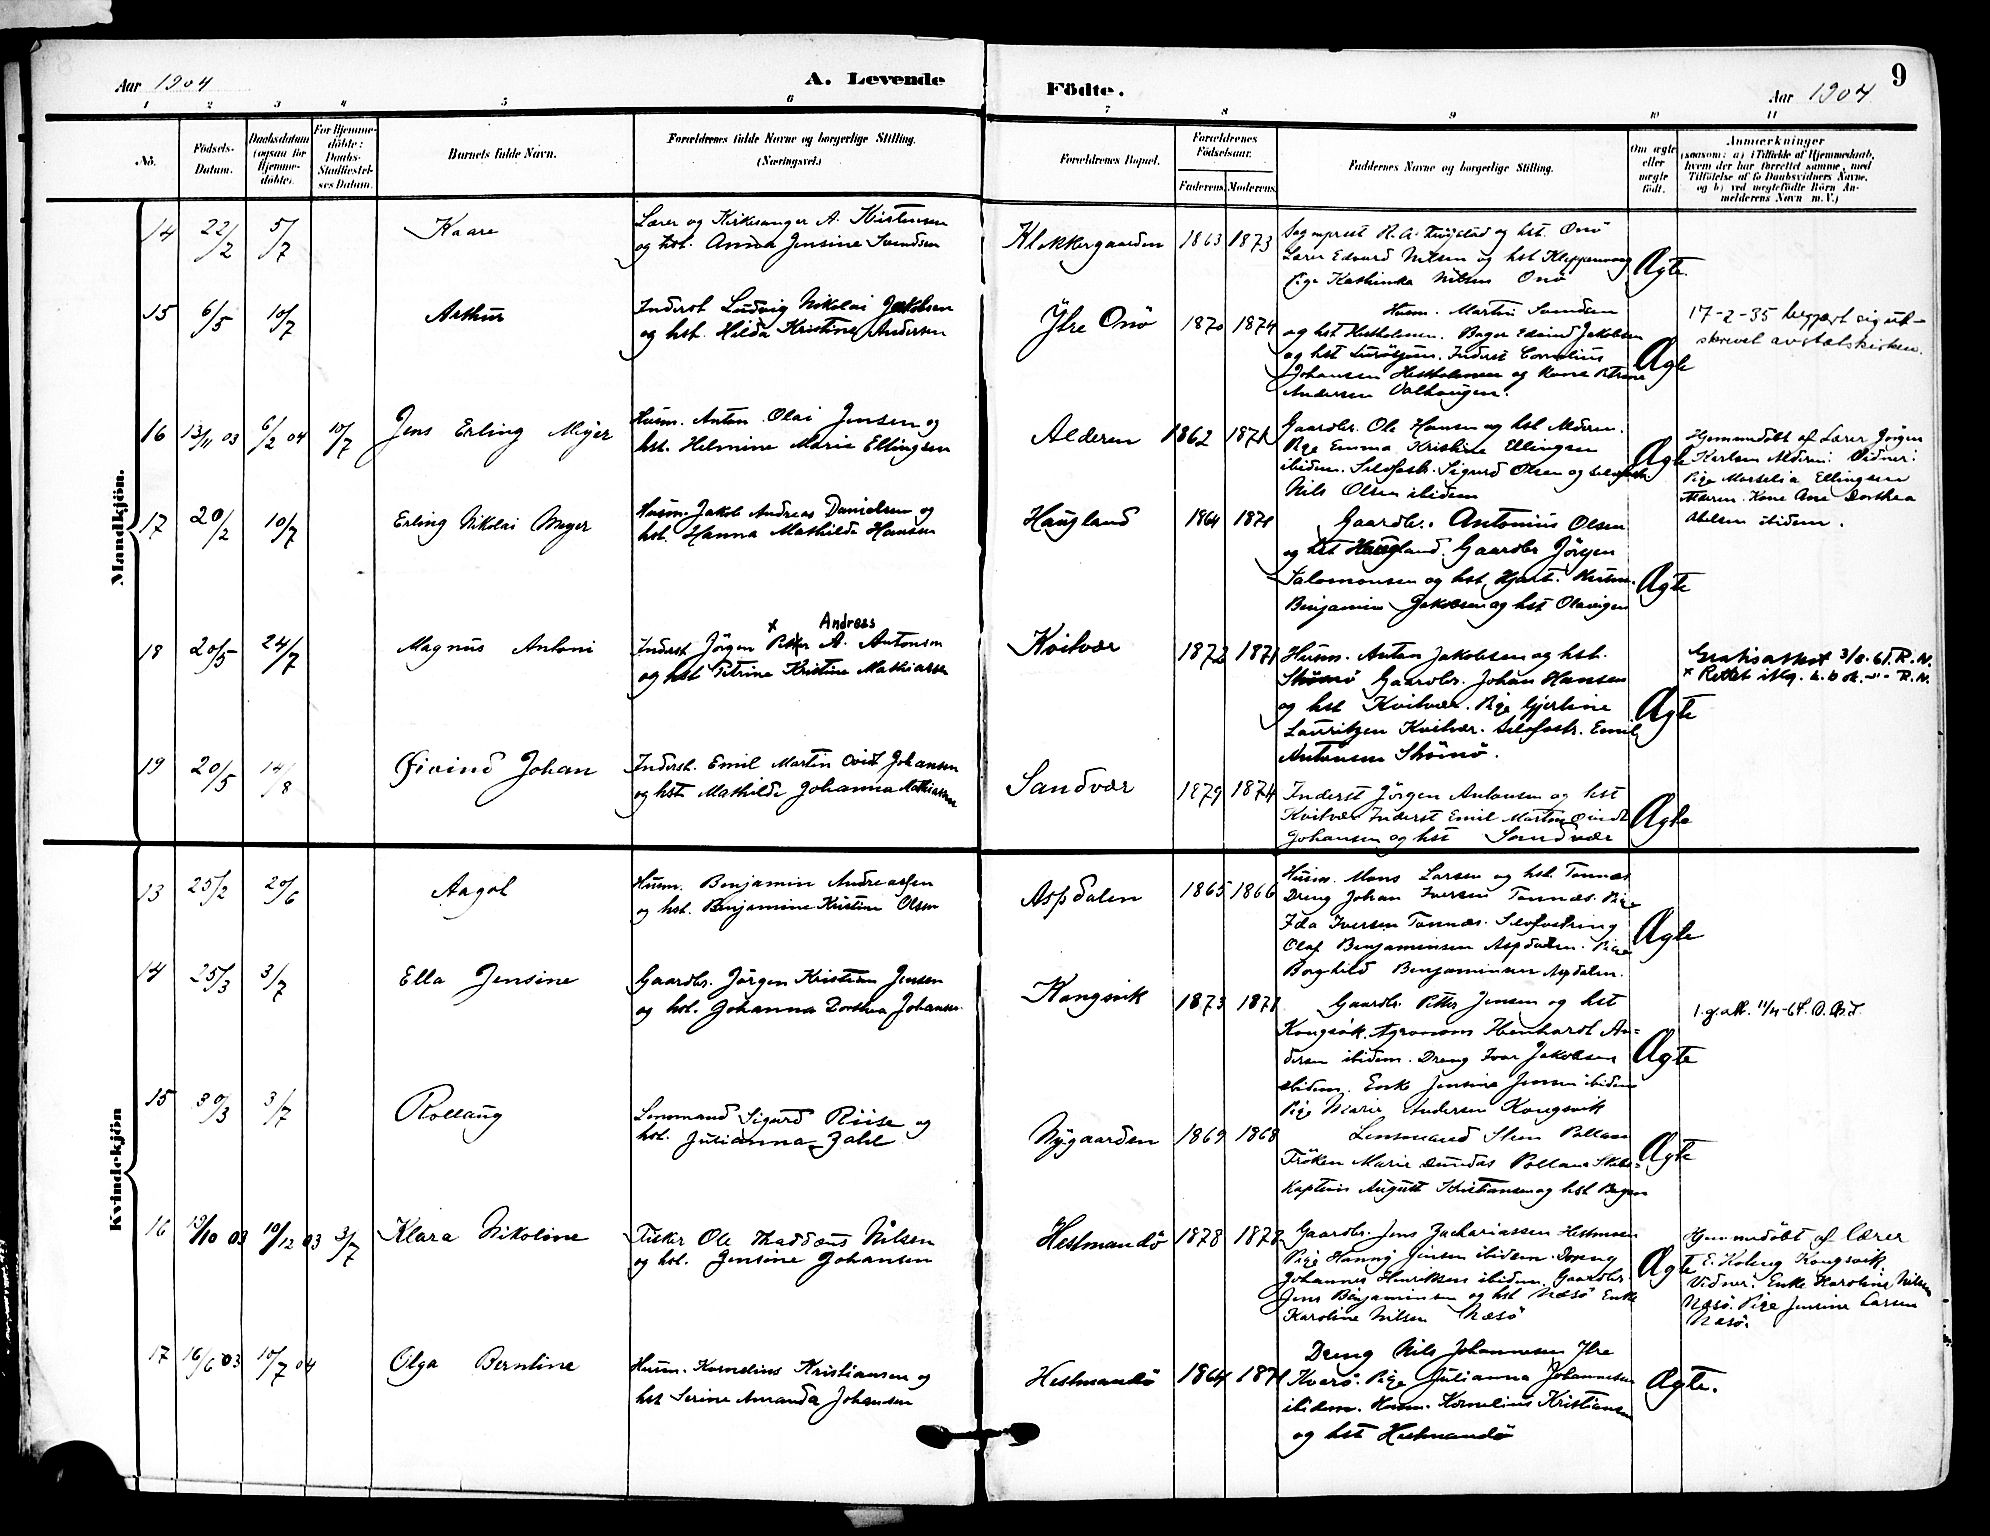 Aar 1904
A. Levende
Födte.
Aar 1904
9
1 2 3 4 5 6 7 8 9 10 11
No.
Födsels-
Datum.
Daabsdatum
(ogsaa for
Hjemme-
döbte).
For Hjemme-
döbte:
Daabs-
Stadfæstel-
ses Datum.
Barnets fulde Navn.
Forældrenes fulde Navne og borgerlige Stilling.
(Næringsvei.)
Forældrenes Bopæl.
Forældrenes
Födselsaar.
Faderens. Moderens.
Faddernes Navne og borgerlige Stilling.
Om ægte
eller
uægte
födt.
Anmærkninger
(saasom: a) i Tilfælde af Hjemmedaab,
hvem der har forrettet samme, med
Tilföielse af to Daabsvidners Navne,
og b) ved uægtefödte Börn An-
melderens Navn m. V.)
Mandkjön.
14 22/2 5/7 Kaare
Lærer og Kirkesanger A. Kristensen
og hst. Anna Jensine Svendsen
Klokkergaarden 1863 1873
Sogneprest og hst. Onö
Lærer Edvard Nilsen og hst Kleppe
Pige Kathinka Nilsen Onö
Ægte.
15 6/5 10/7 Arthur
Inderst Ludvig Nikolai Jakobsen
og hst. Hilda Kristine Andersen
Ytre Onö 1870 1874
Husm. Martin Svendsen
og hst Hestholmen. Bager Edvind Jakobsen
og hst Inderst Cornelius
Johansen Hestholmen og Kone Petrine
Andersen Valhaugen.
Ægte
17-2-35 begjært sig ut-
skrevet av statskirken.
16 13/11 03 6/2 04 10/7 Jens Erling Meyer
Husm. Anton Olai Jensen og
hst. Helmine Marie Ellingsen
Alderen 1862 1871
Gaardbr. Ole Hansen og hst Alderen.
Pige Emma Kristine Ellingsen
ibidem. Selvfostr. Sigurd Olsen og selvfostr.
Nils Olsen ibidem
Ægte
Hjemmedöbt af Lærer Jörgen
Karlsen Alderen: Vidner:
Pige Marselia Ellingsen
Alderen. Kone Ane Dorthea
Abelsen ibidem.
17 20/2 10/7 Erling Nikolai Meyer
Husm. Jakob Andreas Danielsen og
hst. Hanna Mathilde Hansen
Haugland 1864 1871
Gaardbr. Antonius Olsen
og hst Haugland. Gaardbr Jörgen
Salomonsen og hst, Hjart. Husm.
Benjamin Jakobsen og hst Olavigen
Ægte
18 20/5 24/7 Magnus Antoni
x Andreas
Inderst Jörgen Peter A. Antonsen
og hst Petrine Kristine Mathiassen
Kvitvær 1872 1871
Husm. Anton Jakobsen og hst.
Skömö Gaardbr. Johan Hansen
og hst Kvitvær. Pige Gjertine
Lauritzen Kvitvær. Selvfostr. Emil
Antonsen Skömö.
Ægte
Gratisattest 3/8.61. R.N.
x Rettet iflg. k.b ok. -"- R.N.
19 20/5 14/8 Øivind Johan
Inderst. Emil Martin Ovidt Johansen
og hst Mathilde Johanna Mathiassen
Sandvær 1879 1874
Inderst Jörgen Antonsen og hst
Kvitvær Inderst Emil Martin Ovidt
Johansen og hst Sandvær
Ægte
Kvindekjön
13 25/2 20/6 Aagot
Husm. Benjamin Andreassen
og hst. Benjamine Kristine Olsen
Aspdalen 1865 1866
Husm. Mons Larsen og hst. Tonnes
Dreng Johan Iversen Tonnæs. Pige
Ida Iversen Tonnæs. Selvfostring
Olaf Benjaminsen Aspdalen. Pige
Borghild Benjaminsen Aspdalen.
Ægte
14 25/3 3/7 Ella Jensine
Gaardbr. Jörgen Kristian Jensen
og hst. Johanna Dorthea Johansen
Kongsvik 1873 1871
Gaardbr. Petter Jensen og hst
Kongsvik. Agronom Ebenhardt An-
dersen ibidem. Dreng Ivar Jakobsen
ibidem. Enke Jensine Jensen ibidem
Pige Marie Andersen Kongsvik
Ægte
1.g.att. 11/4-64.
15 30/3 3/7 Rollaug
Lensmand Sigurd Riise og
hst. Julianna Zahl
Nygaarden 1869 1868
Lensmand Sten Pollan
Fröken Marie Dundas Pollan
Kaptein August Kristiansen og hst Bergen
Ægte
16 13/10 03 10/12 03 3/7 Klara Nikoline
Fisker Ole Thaddæus Nilsen
og hst. Jensine Johansen
Hestmandö 1878 1878
Gaardbr. Jens Zachariassen Hestmoen
Pige Hanny Jensen ibidem. Dreng
Johannes Henriksen ibidem. Gaardbr.
Jens Benjaminsen og hst Næsö Enke
Karoline Nilsen Næsö
Ægte
Hjemmedöbt af Lærer
E. Kolvig Kongsvik
Vidner: Enke Karoline Nilsen
Næsö. Pige Jensine Larsen
Næsö.
17 16/6 03 10/7 04 Olga Berntine
Husm. Kornelius Kristiansen og
hst Serine Amanda Johansen
Hestmandö 1864 1871
Dreng Nils Johannesen Ytre
Kvarö. Pige Julianna Johannesen
ibidem. Husm. Kornelius Kristiansen
og hst Hestmandö
Ægte.